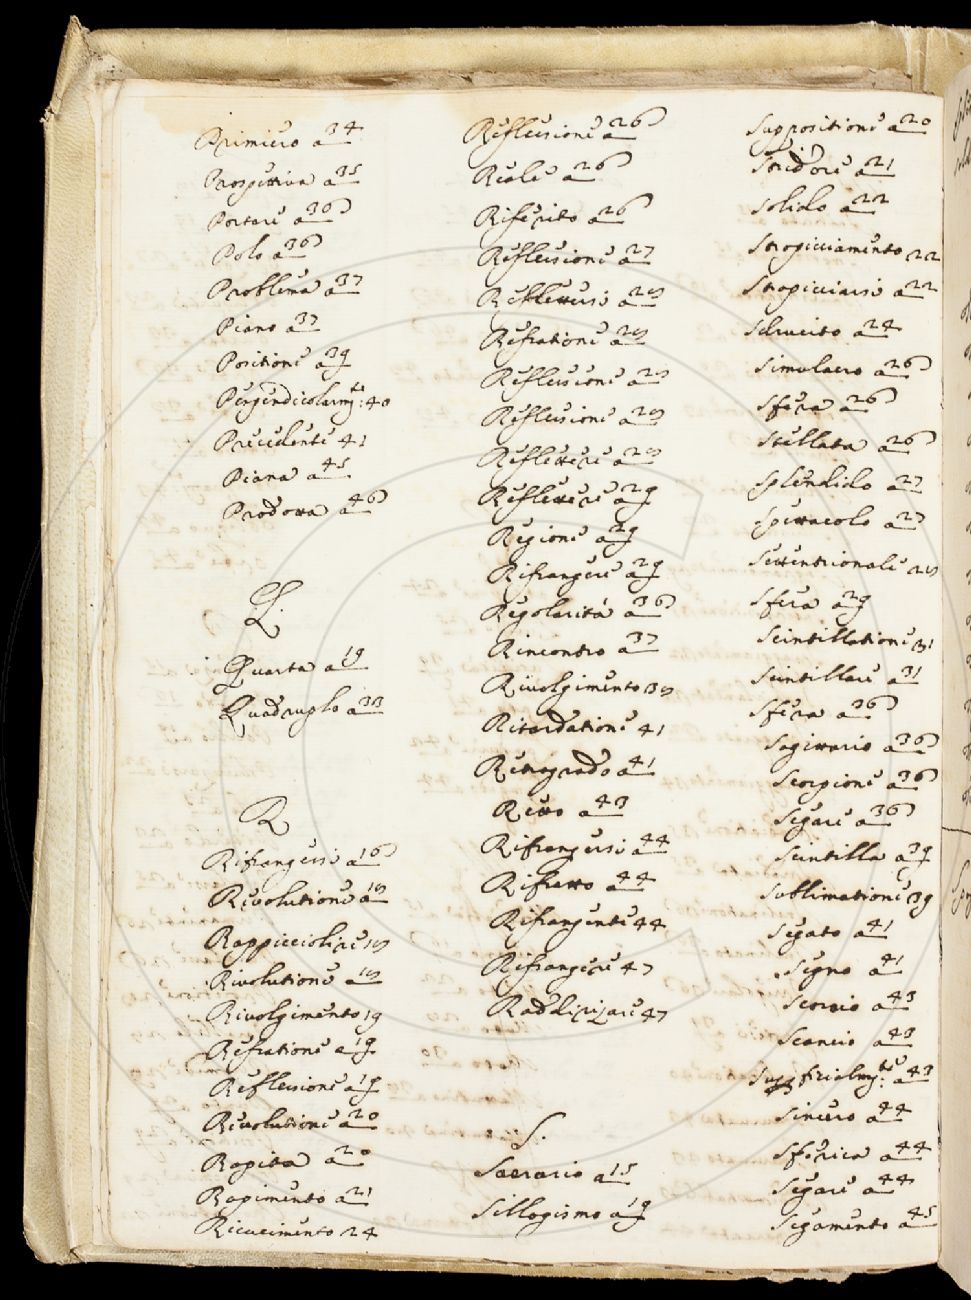 Primiero a 34
Prospettiva a 35
Portare a 36
Polo a 36
Problema a 37
Piano a 37
Positione a 39
Perpendicolarmte: 40
Precedente 41
Piana a 45
Prodotta a 46
Q.
Quarta a 19
Quadruplo a 33
R
Rifrangersi a 16
Rivolutione a 18
Rappicciolire 18
Rivolutione a 18
Rivolgimento 19
Refratione a 19
Reflessione a 19
Rivolutione a 20
Rapita a 20
Rapimento a 21
Ricevimento 24
Reflessione a 26
Reale a 26
Riferito a 26
Reflessione a 27
Reflettersi a 28
Refratione a 28
Reflessione a 28
Reflessione a 28
Reflettere a 28
Reflettere a 29
Regione a 29
Rifrangere a 29
Regolarità a 36
Rincontro a 37
Rivolgimento 38
Ritardatione 41
Retrogrado a 41
Retto a 43
Rifrangersi a 44
Rifratto a 44
Rifrangente 44
Rifrangere 47
Raddirizzare 47
S.
Sacrario a 15
Sillogismo a 19
Suppositione a 20
Stridore a 21
Solido a 22
Stropicciamento 22
Stropicciarsi a 22
Sdrucito a 24
Simulacro a 26
Sfera a 26
Stellata a 26
Splendido a 27
Spettacolo a 27
Settentrionale 28
Sfera a 29
Scintillatione 31
Scintillare a 31
Sfera a 36
Sagittario a 36
Scorpione a 36
Segare a 36
Scintilla a 39
Sublimatione 39
Segato a 41
Segno a 41
Scorcio a 43
Scancio a 43
Superficialmte: a 43
Sincero a 44
Sferica a 44
Segare a 44
Segamento a 45